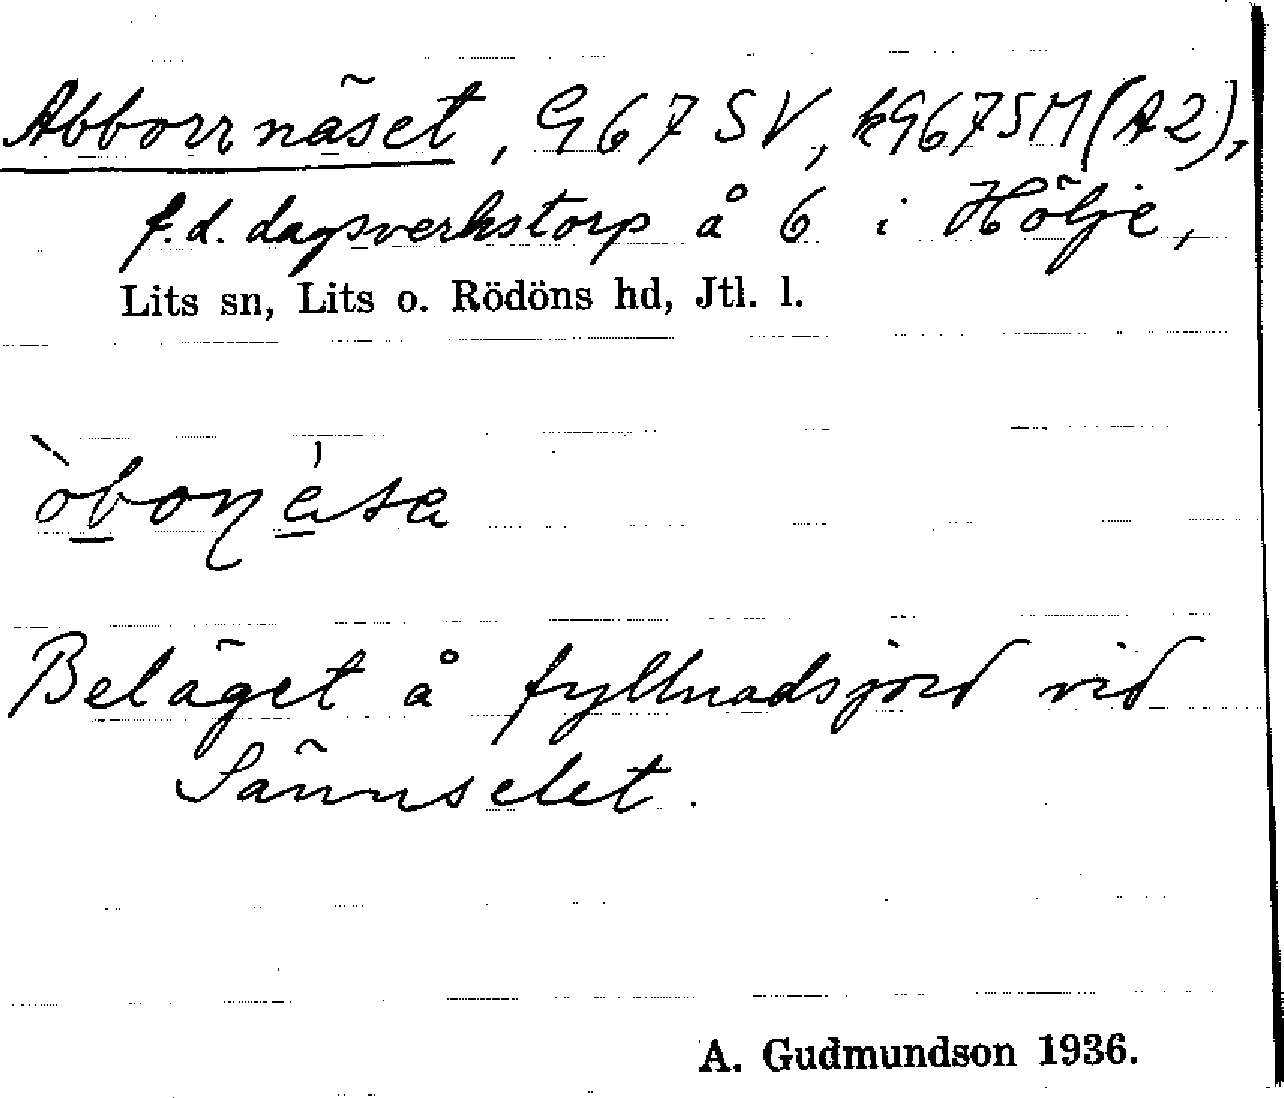 Abborrnäset, G67SV, kG67SM(A2),
f.d. dagsverkstorp å 6 i Hölje,
Lits sn, Lits o. Rödöns hd, Jtl. l.
Beläget å fyllnadsjord vid
Sännselet.
A. Gudmundson 1936.